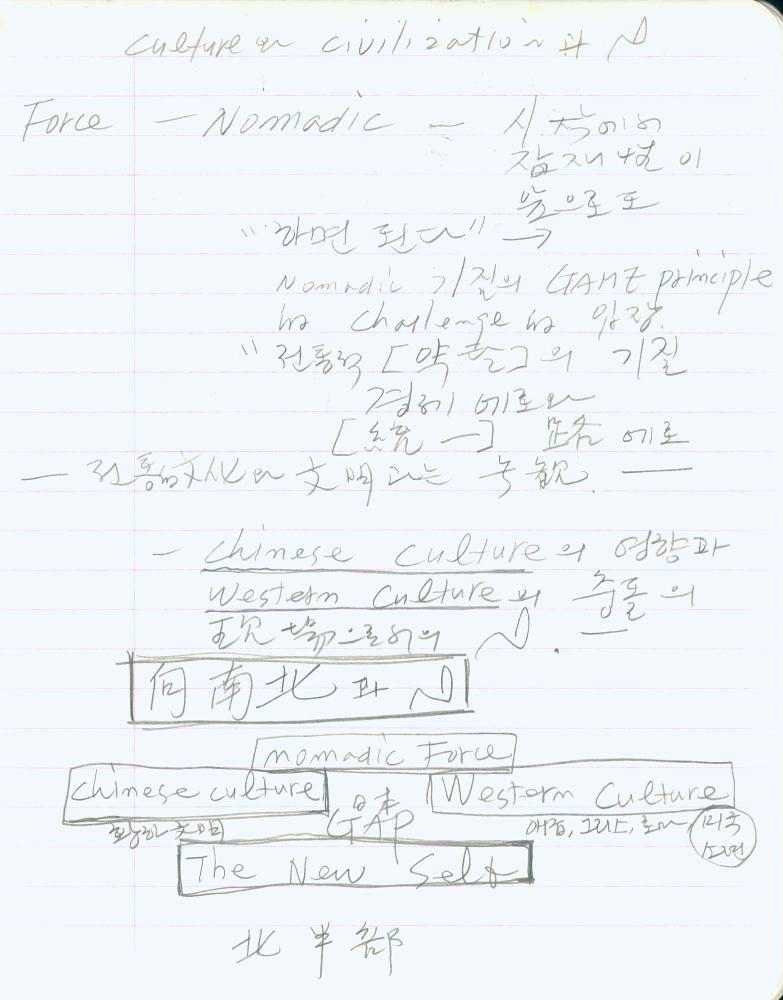 culture와 civilization과 N
Force — Nomadic — 시작에서
잠재성이
앞으로도
"하면 된다" →
Nomadic 기질의 GAHE principle
challenge 입장.
"전통적 [약탈]의 기질
경제에로와
[統一] 에로
— 전통文化와 文明라는 客観. —
— Chinese culture의 영향과
Western Culture의 충돌의
現場으로서의 N. —
向南北과 N
nomadic Force
Chinese culture 日本 Western Culture
황하문명 GAP 애급, 그리스, 로마, 미국 소련
The New Self
北半部